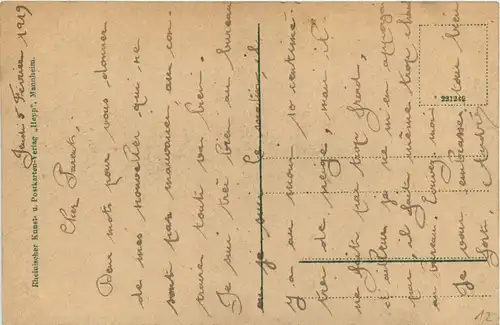 Jeudi 5 Février 1919
Cher Parents,
Deux mots pour vous donner
de mes nouvelles qui ne
sont pas mauvaises au con-
traire tout va bien.
Je suis très bien au bureau
ou je suis le matin il
y a au moins 10 centimè
tres de neige, mais il
ne fait pas trop froid,
d'ailleurs je ne m'en apperçois
pas, il fait même trop chaud
au bureau.
Je vous embrasse tous bien
fort
André
Rheinischer Kunst- u. Postkarten-Verlag „Hepp", Mannheim.
221246
12